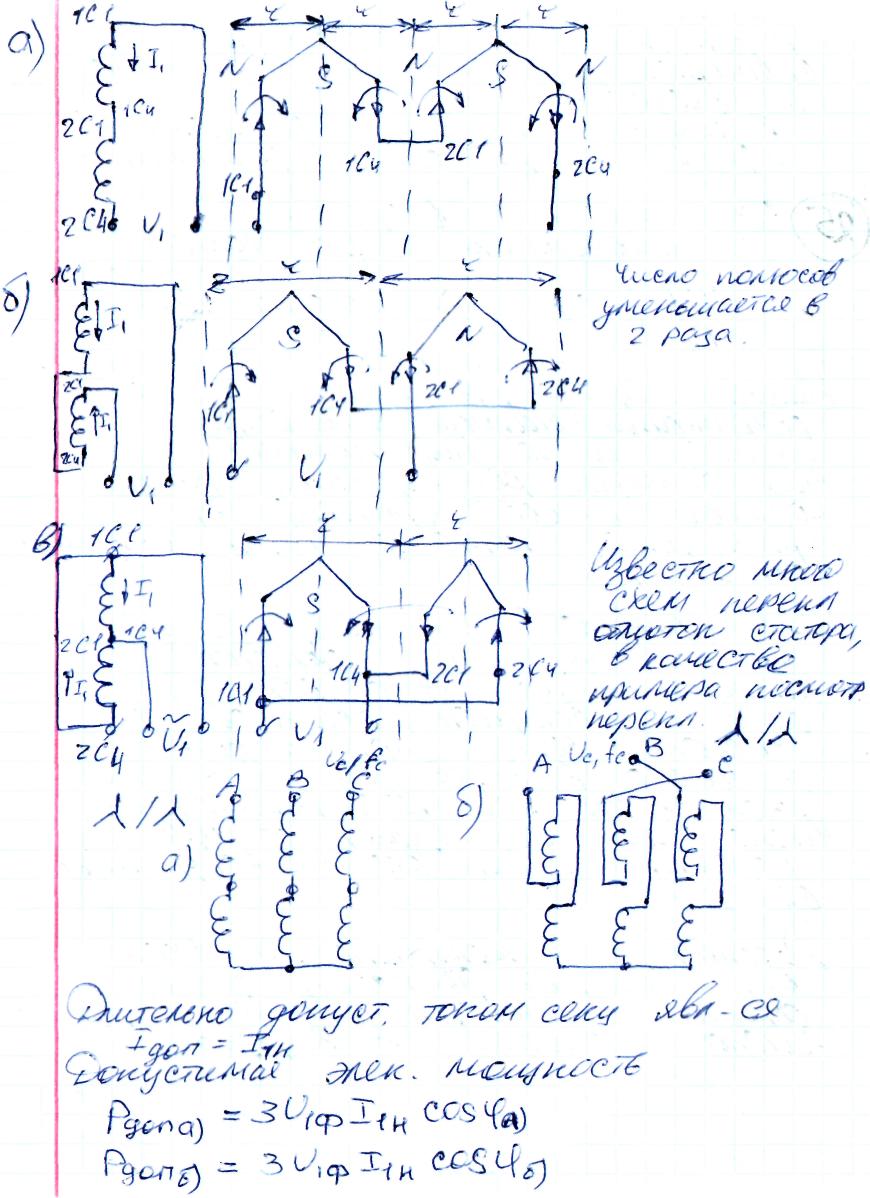 а)
1C1
I₁
1C4
2C1
2C4 U₁
τ τ τ τ
N S N S N
1C1 1C4 2C1 2C4
б)
1C1
I₁
2C1
I₁
2C4
U₁
τ τ
S N
1C1 1C4 2C1 2C4
U₁
Число полюсов
уменьшается в
2 раза.
в)
1C1
I₁
2C1 1C4
I₁
2C4 U₁
τ τ
S
1C1 1C4 2C1 2C4
U₁
Известно много
схем перекл
статора,
в качестве
примера посмотр
перекл. Y/Y
Y/Y
а)
A B C
Uc, fc
б)
A Uc, fc B C
Длительно допуст. током секц явл-ся
Iдоп = I1н
Допустимая элек. мощность
Pдоп а) = 3U1ф I1н cosφа)
Pдоп б) = 3U1ф I1н cosφб)